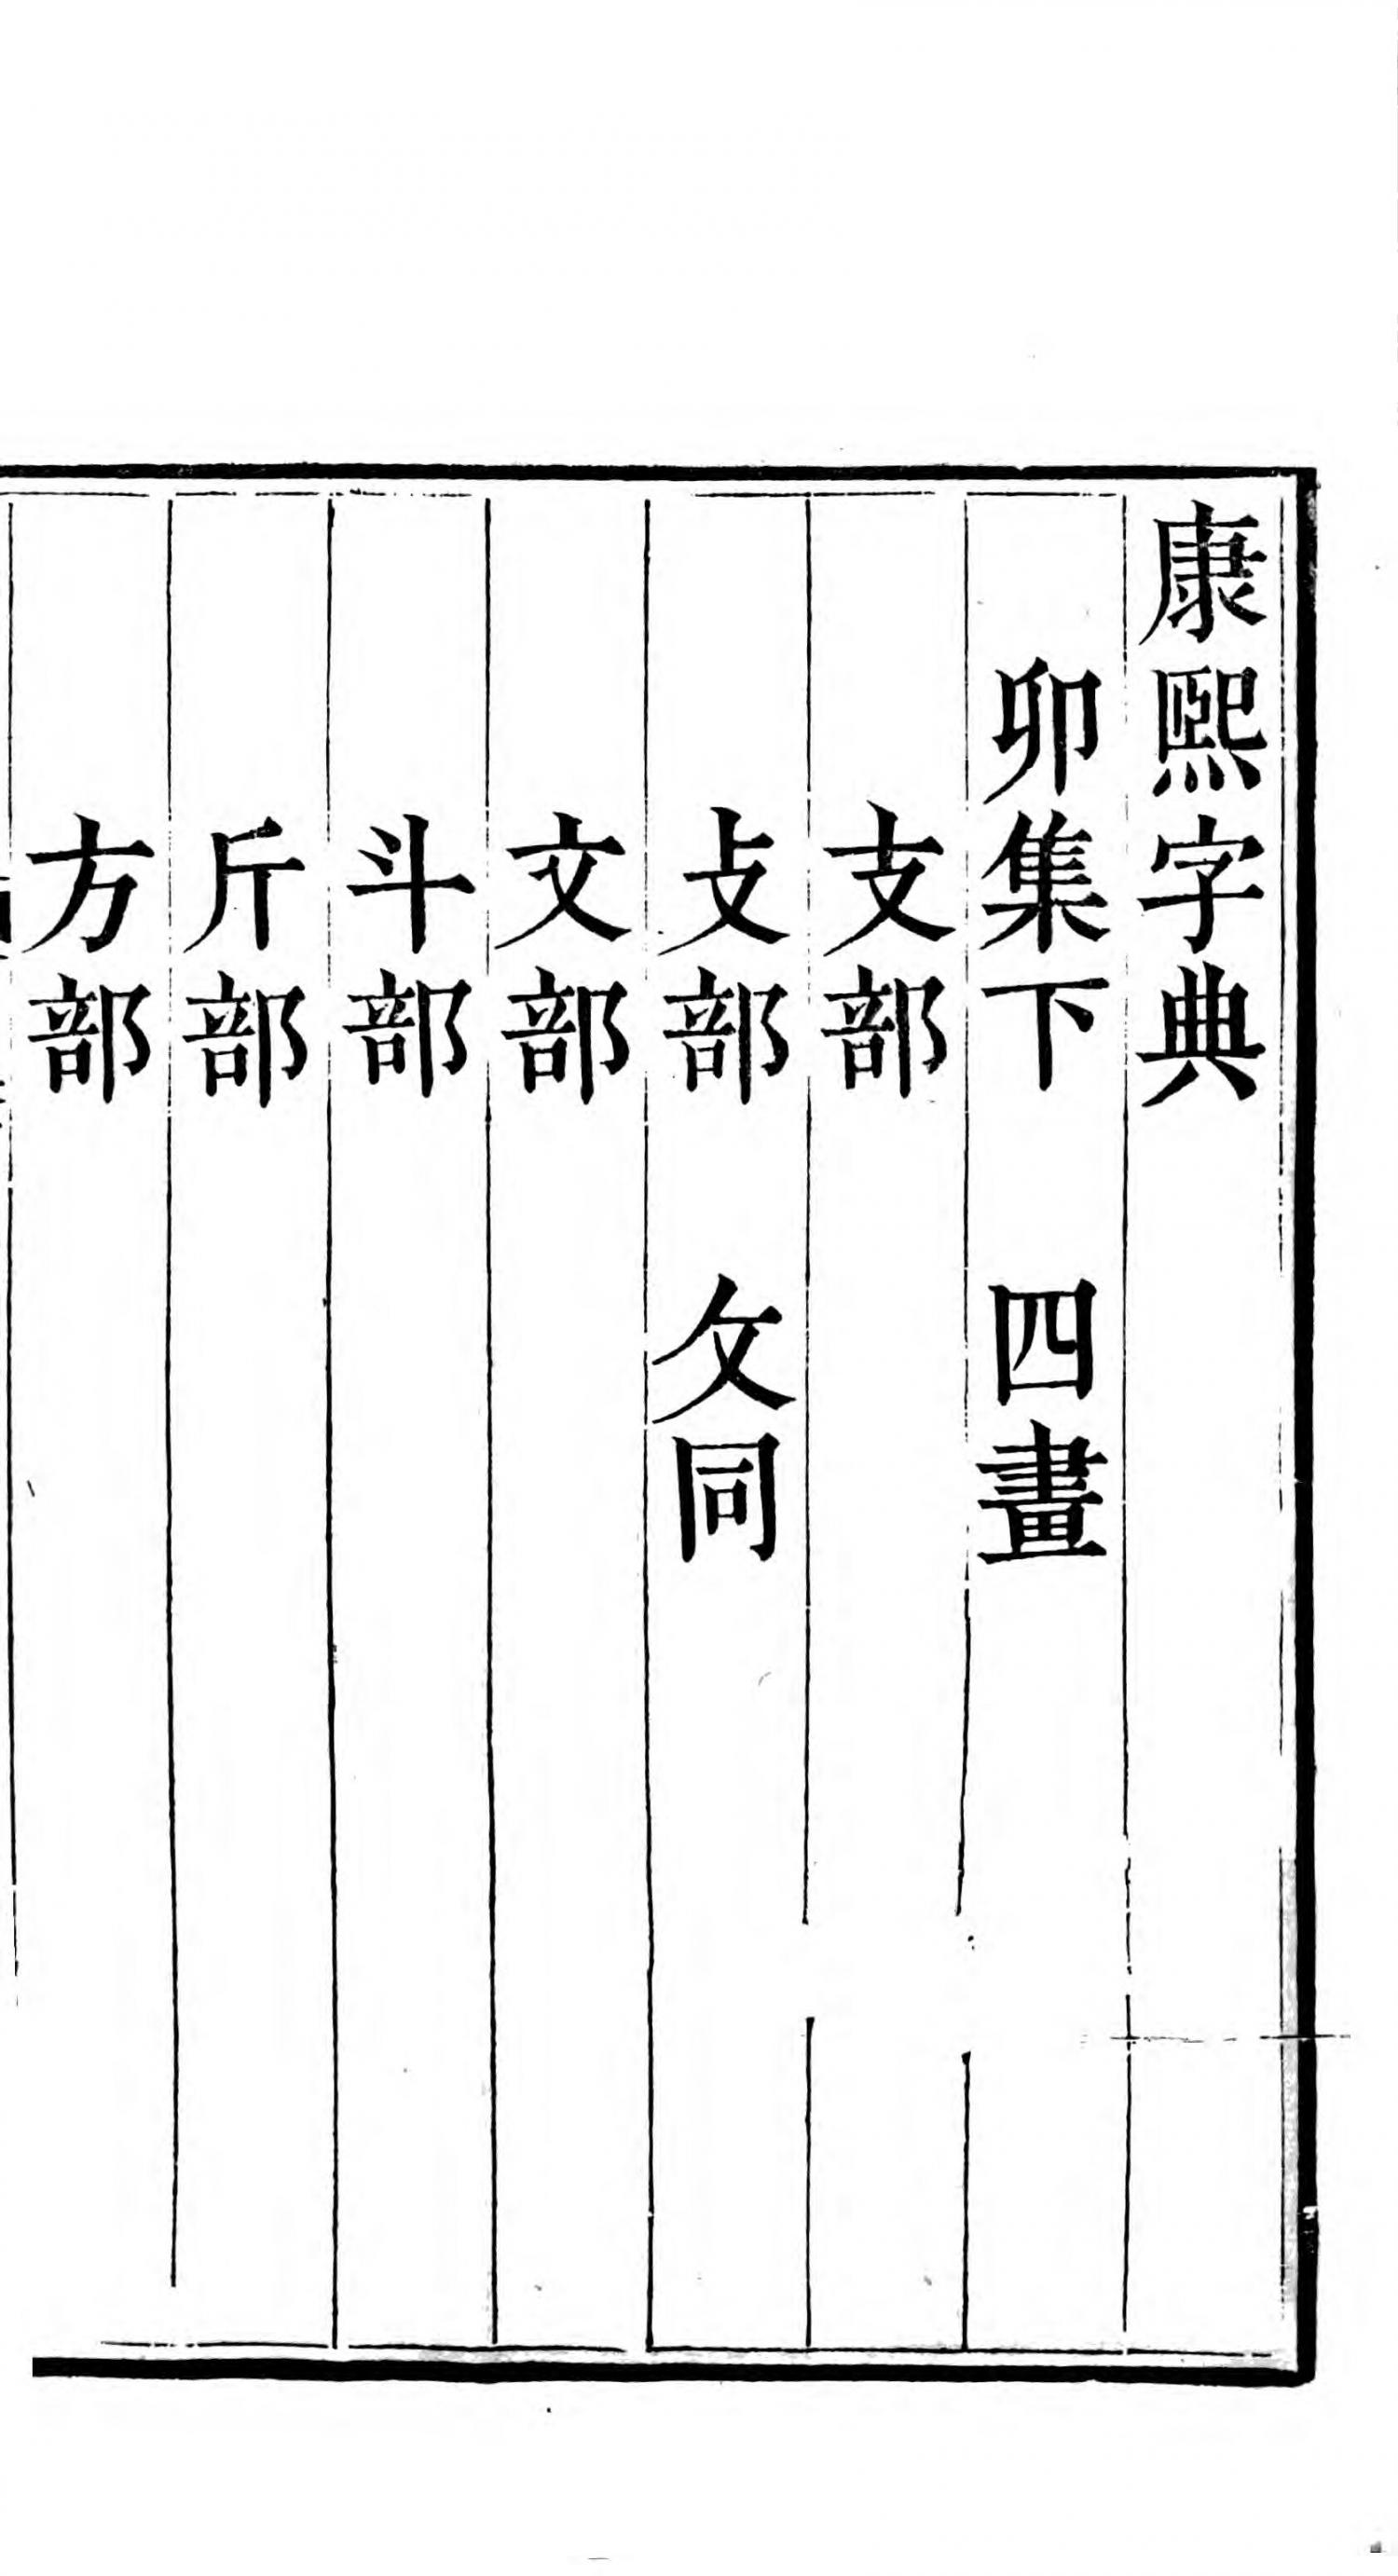 康熙字典
卯集下　四畫
支部
攴部　攵同
文部
斗部
斤部
方部